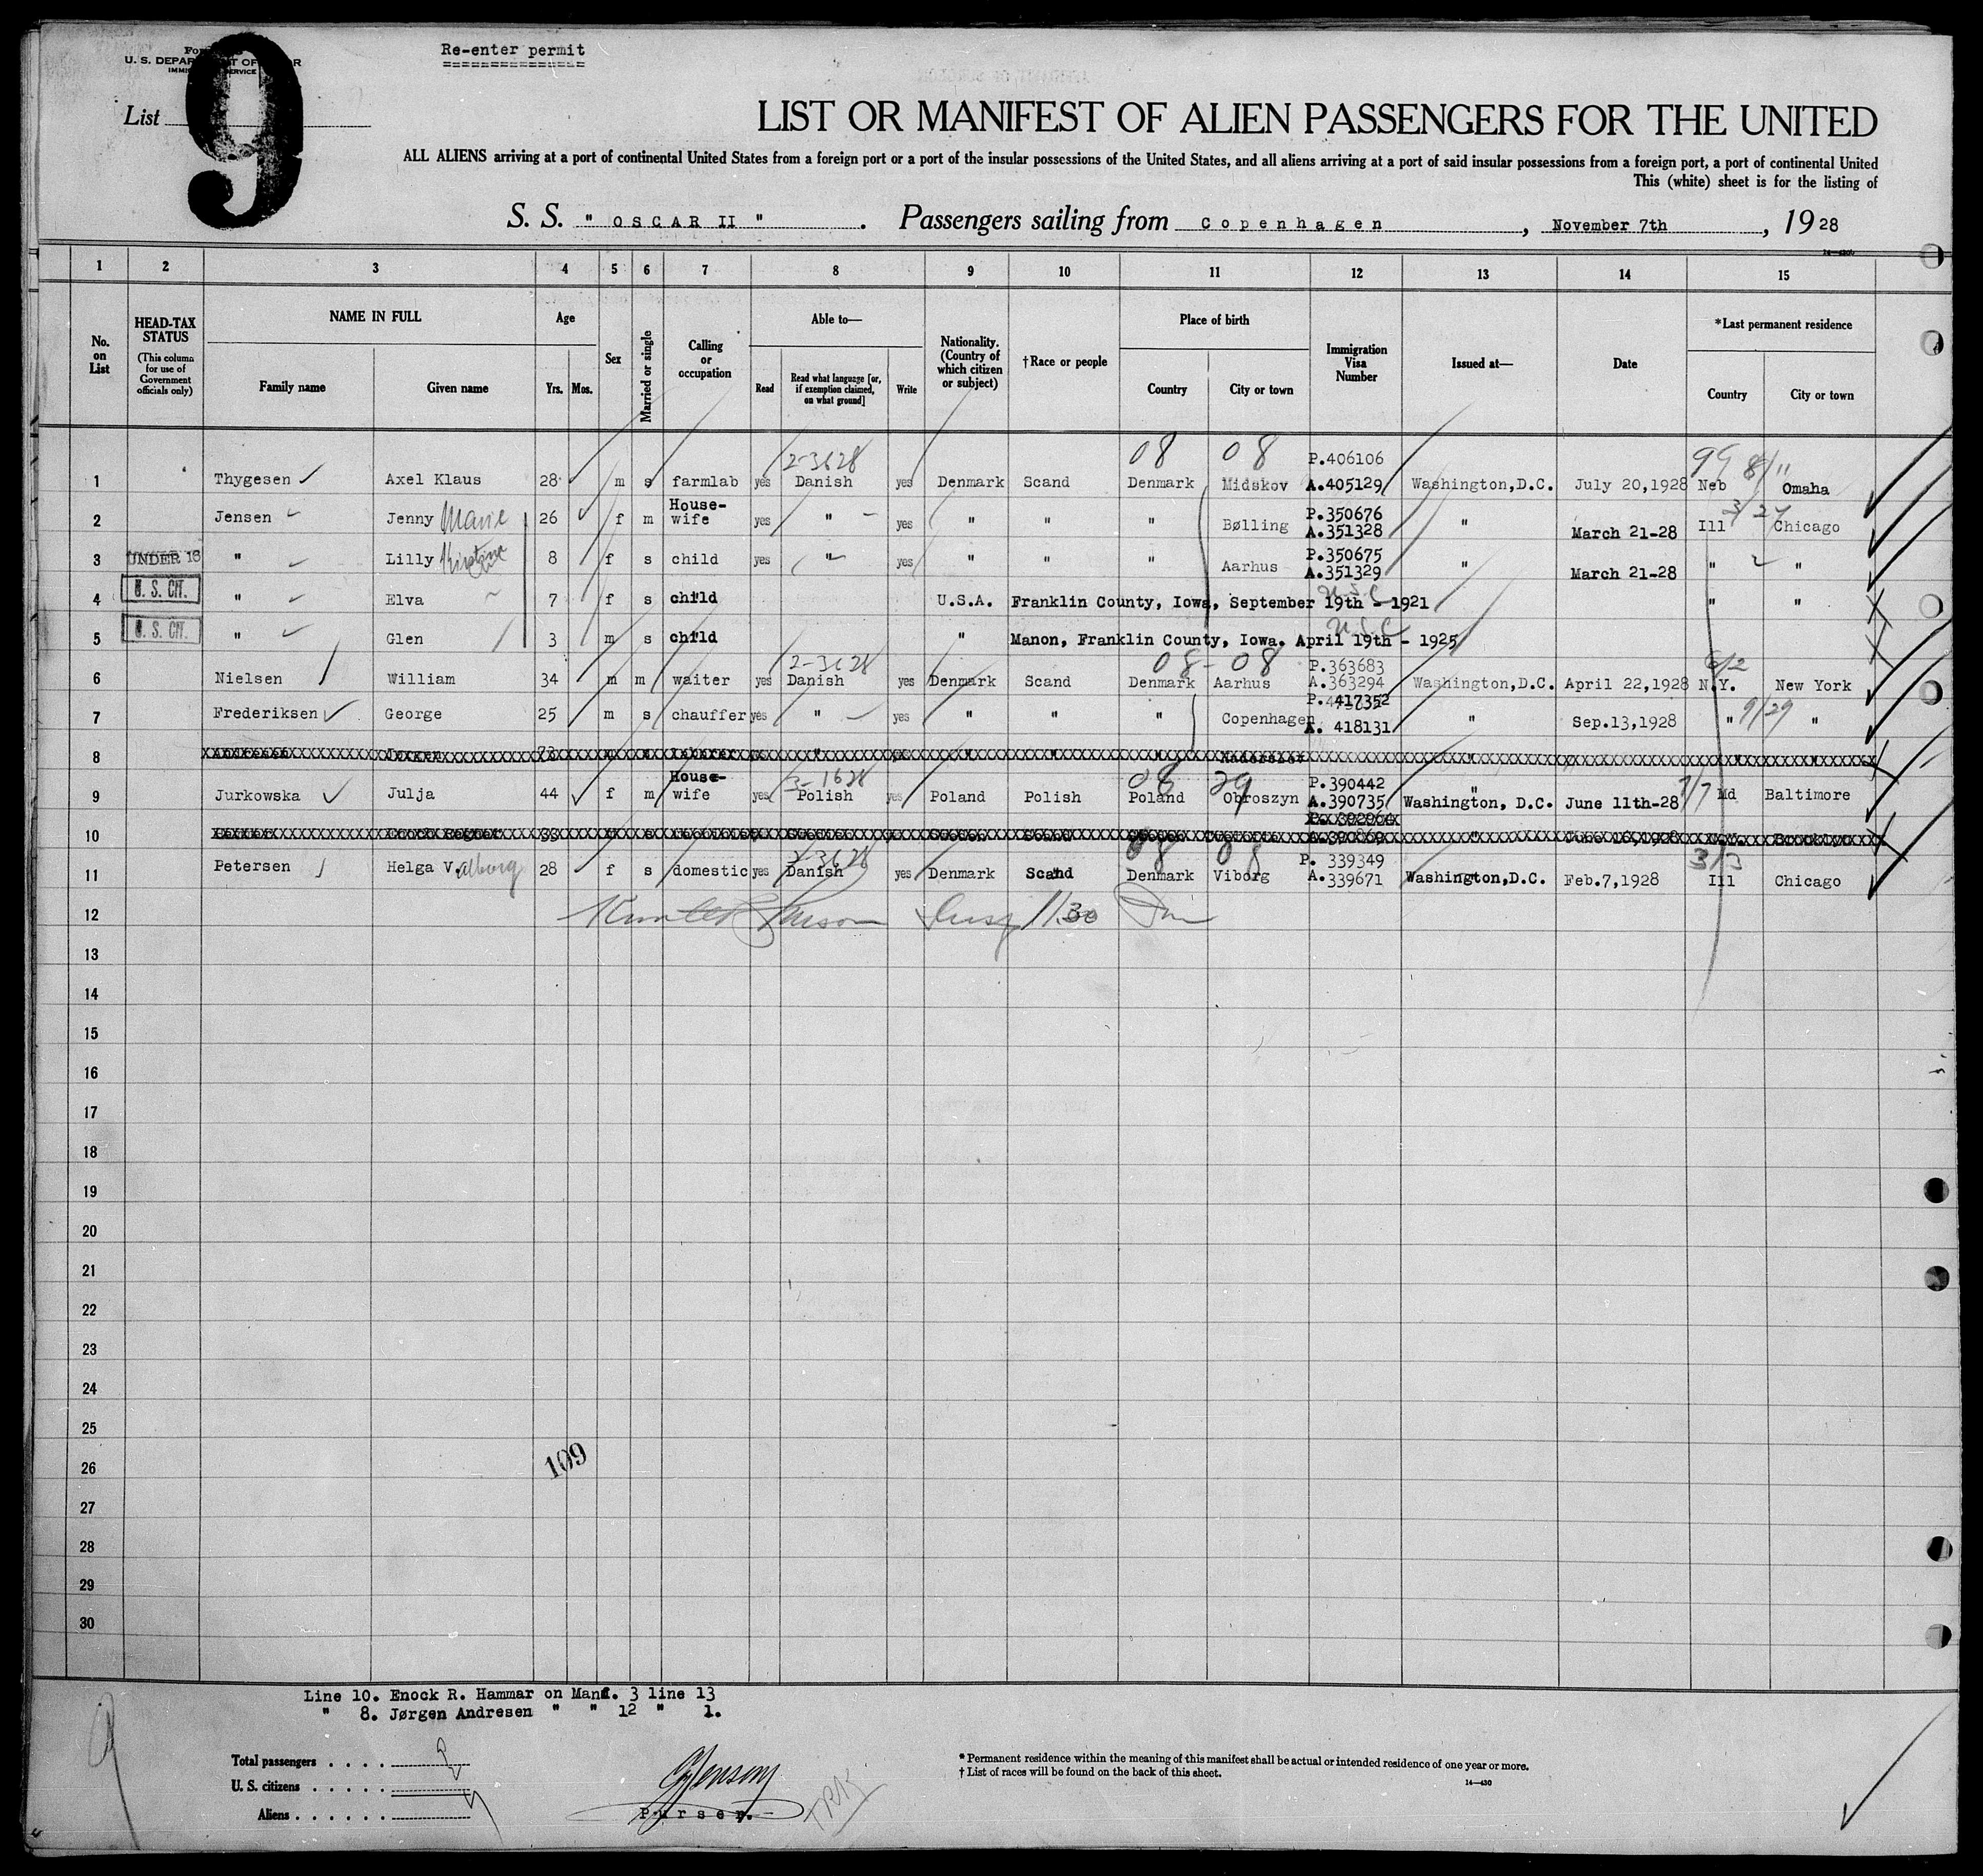 Re-enter permit
U. S. DEPAR OF OR
List 9
LIST OR MANIFEST OF ALIEN PASSENGERS FOR THE UNITED
ALL ALIENS arriving at a port of continental United States from a foreign port or a port of the insular possessions of the United States, and all aliens arriving at a port of said insular possessions from a foreign port, a port of continental United
This (white) sheet is for the listing of
S. S. " OSCAR II ". Passengers sailing from Copenhagen, November 7th, 1928
1 2 3 4 5 6 7 8 9 10 11 12 13 14 15
No. on List
HEAD-TAX STATUS (This column for use of Government officials only)
NAME IN FULL
Family name
Given name
Age
Yrs. Mos.
Sex
Married or single
Calling or occupation
Able to—
Read
Read what language [or, if exemption claimed, on what ground]
Write
Nationality. (Country of which citizen or subject)
†Race or people
Place of birth
Country
City or town
Immigration Visa Number
Issued at—
Date
*Last permanent residence
Country
City or town
2-3628 08 08 P.406106 99 8/"
1 Thygesen Axel Klaus 28 m s farmlab yes Danish yes Denmark Scand Denmark Midskov A.405129 Washington,D.C. July 20,1928 Neb Omaha
2 Jensen Jenny Marie 26 f m House-wife yes " yes " " " Bølling P.350676 A.351328 " March 21-28 Ill 3/27 Chicago
3 UNDER 16 " Lilly Kirstine 8 f s child yes " yes " " " Aarhus P.350675 A.351329 " March 21-28 " "
4 U. S. CIT. " Elva 7 f s child U.S.A. Franklin County, Iowa, September 19th - 1921 U.S.C " "
5 U. S. CIT. " Glen 3 m s child " Manon, Franklin County, Iowa. April 19th - 1925 U.S.C
2-3628 08 - 08 P.363683 6/2
6 Nielsen William 34 m m waiter yes Danish yes Denmark Scand Denmark Aarhus A.363294 Washington,D.C. April 22,1928 N.Y. New York
7 Frederiksen George 25 m s chauffer yes " yes " " " Copenhagen P.417352 A. 418131 " Sep.13,1928 " 9/29 "
8
House- 3-1628 08 29 P.390442
9 Jurkowska Julja 44 f m wife yes Polish yes Poland Polish Poland Obroszyn A.390735 Washington, D.C. June 11th-28 7/7 Md Baltimore
10
2-3628 08 08 P. 339349 3/3
11 Petersen Helga V. alborg 28 f s domestic yes Danish yes Denmark Scand Denmark Viborg A.339671 Washington,D.C. Feb.7,1928 Ill Chicago
12 Insp 11.30
13
14
15
16
17
18
19
20
21
22
23
24
25
26 109
27
28
29
30
Line 10. Enock R. Hammar on Manf. 3 line 13
" 8. Jørgen Andresen " " 12 " 1.
9
Total passengers . . . . 9
U. S. citizens . . . . .
Aliens . . . . . .
Purser.
* Permanent residence within the meaning of this manifest shall be actual or intended residence of one year or more.
† List of races will be found on the back of this sheet.
14—430